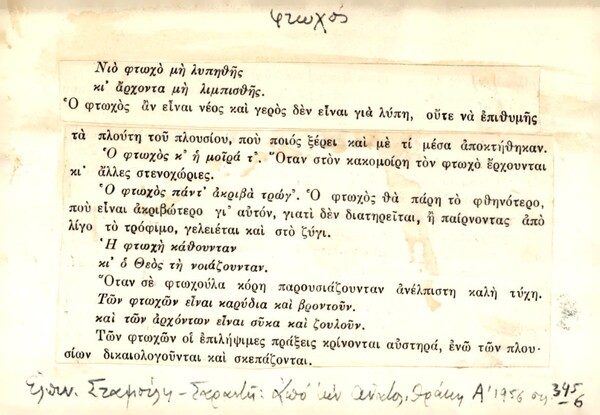 φτωχός
Νιὸ φτωχὸ μὴ λυπηθῆς
κι' ἄρχοντα μὴ λιμπισθῆς.
Ὁ φτωχὸς ἂν εἶναι νέος καὶ γερὸς δὲν εἶναι γιὰ λύπη, οὔτε νὰ ἐπιθυμῆς
τὰ πλούτη τοῦ πλουσίου, ποὺ ποιός ξέρει καὶ μὲ τί μέσα ἀποκτήθηκαν.
Ὁ φτωχὸς κ' ἡ μοῖρά τ'. Ὅταν στὸν κακομοίρη τὸν φτωχὸ ἔρχουνται
κι' ἄλλες στενοχώριες.
Ὁ φτωχὸς πάντ' ἀκριβὰ τρώγ'. Ὁ φτωχὸς θὰ πάρη τὸ φθηνότερο,
ποὺ εἶναι ἀκριβώτερο γι' αὐτόν, γιατὶ δὲν διατηρεῖται, ἢ παίρνοντας ἀπὸ
λίγο τὸ τρόφιμο, γελειέται καὶ στὸ ζύγι.
Ἡ φτωχὴ κάθουνταν
κι' ὁ Θεὸς τὴ νοιάζουνταν.
Ὅταν σὲ φτωχούλα κόρη παρουσιάζουνταν ἀνέλπιστη καλὴ τύχη.
Τῶν φτωχῶν εἶναι καρύδια καὶ βροντοῦν.
καὶ τῶν ἀρχόντων εἶναι σῦκα καὶ ζουλοῦν.
Τῶν φτωχῶν οἱ ἐπιλήψιμες πράξεις κρίνονται αὐστηρά, ἐνῶ τῶν πλου-
σίων δικαιολογοῦνται καὶ σκεπάζονται.
Ἐλπιν. Σταμούλη - Σαραντῆ: Ἀπὸ τὴν Ἀνατολ. Θράκη Α' 1956 σελ 395-6